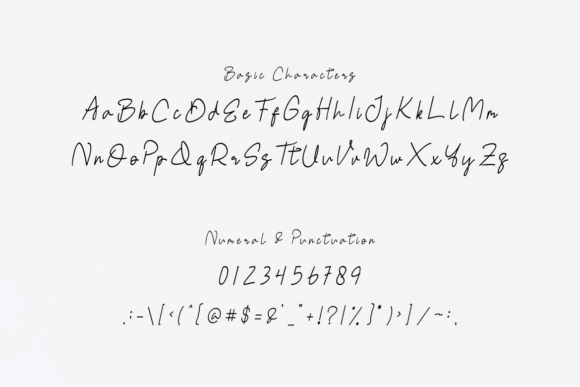 Basic Characters
AaBbCcDdEeFfGgHhIiJjKkLlMm
NnOoPpQqRrSsTtUuVvWwXxYyZz
Numeral & Punctuation
0123456789
.:-\[‹(^{@#$=&'_"+!?|%}*)›]/~:,